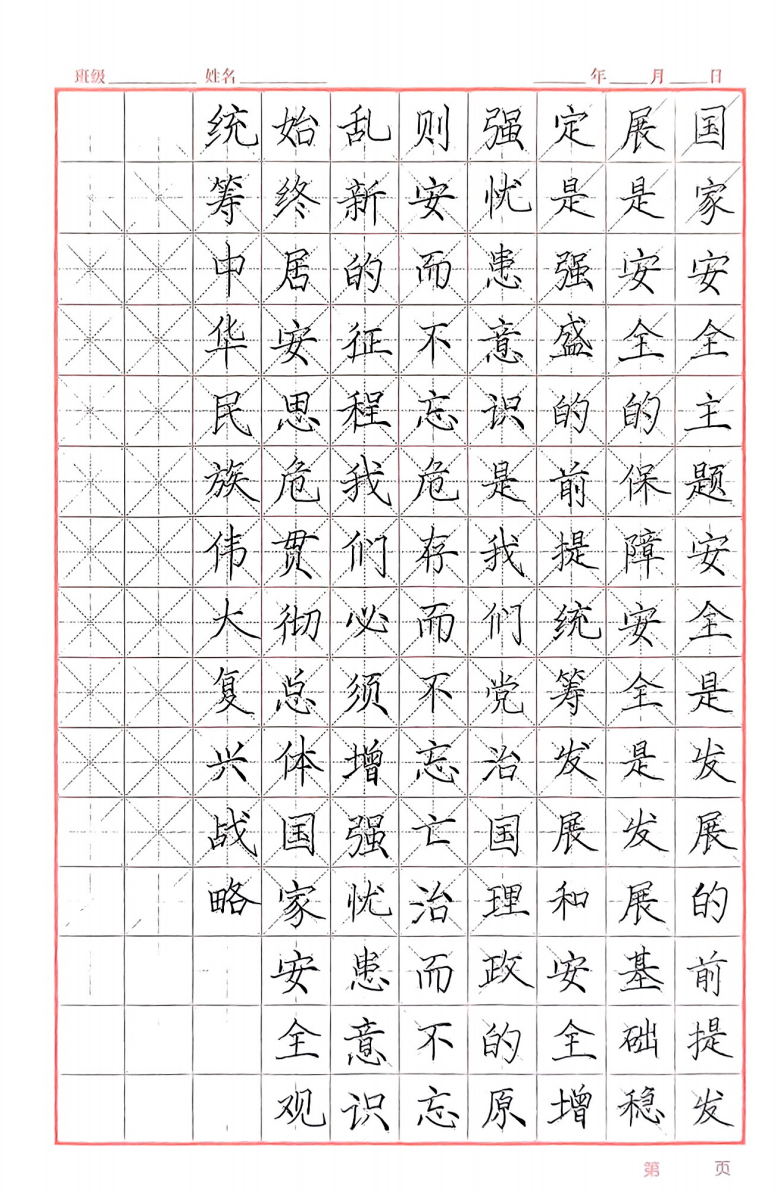 班级 姓名 年 月 日
国家安全主题安全是发展的前提发
展是安全的保障安全是发展基础稳
定是强盛的前提统筹发展和安全增
强忧患意识是我们党治国理政的原
则安而不忘危存而不忘亡治而不忘
乱新的征程我们必须增强忧患意识
始终居安思危贯彻总体国家安全观
统筹中华民族伟大复兴战略
第 页